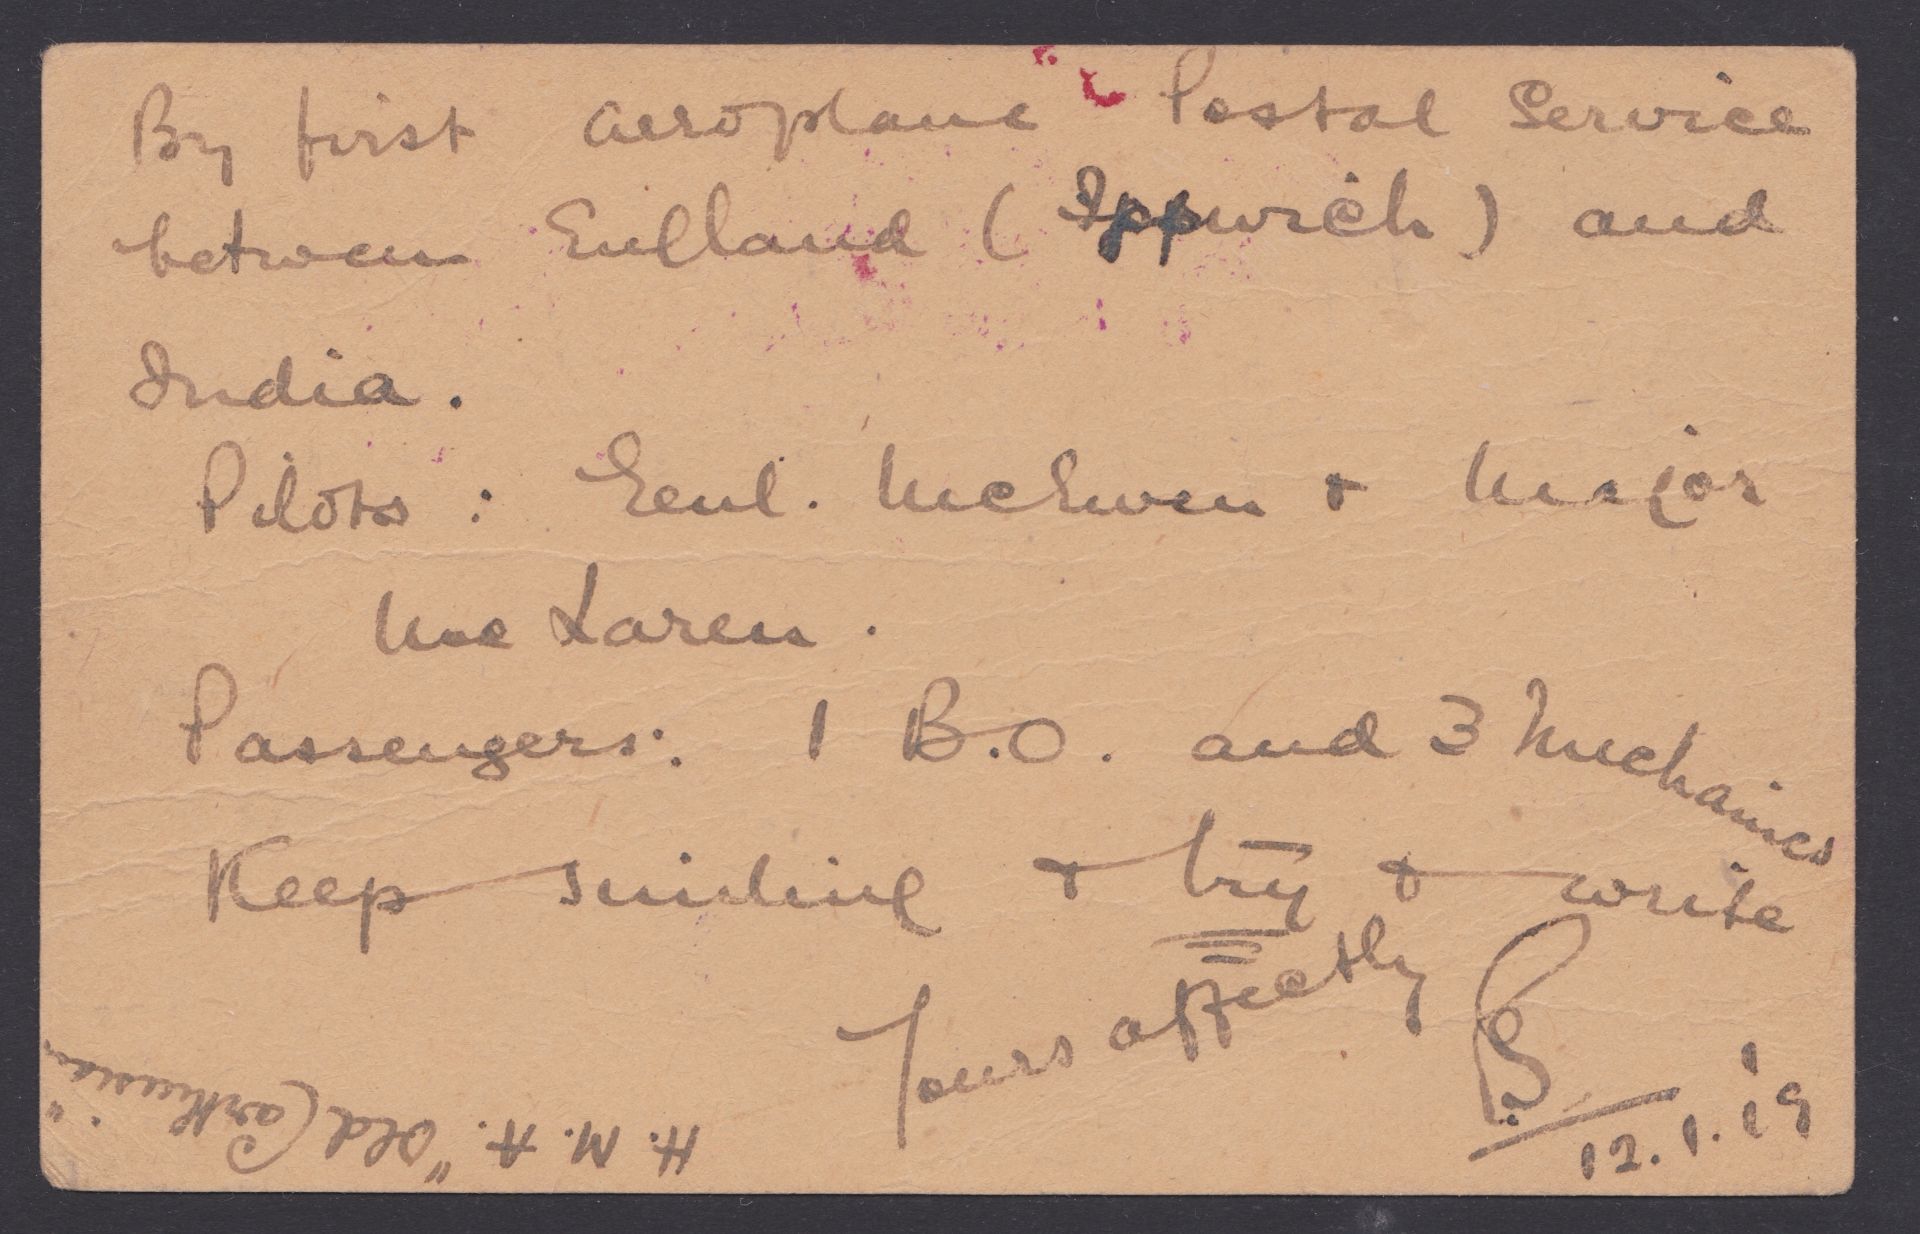 By first aeroplane Postal Service
between England (Ippwich) and
India.
Pilots : Genl. McEwen + Major
Mac Laren.
Passengers: 1 B.O. and 3 Mechanics
Keep smiling + try + write
Yours affectly
12.1.19
H.M.A. "Old Carthusian"